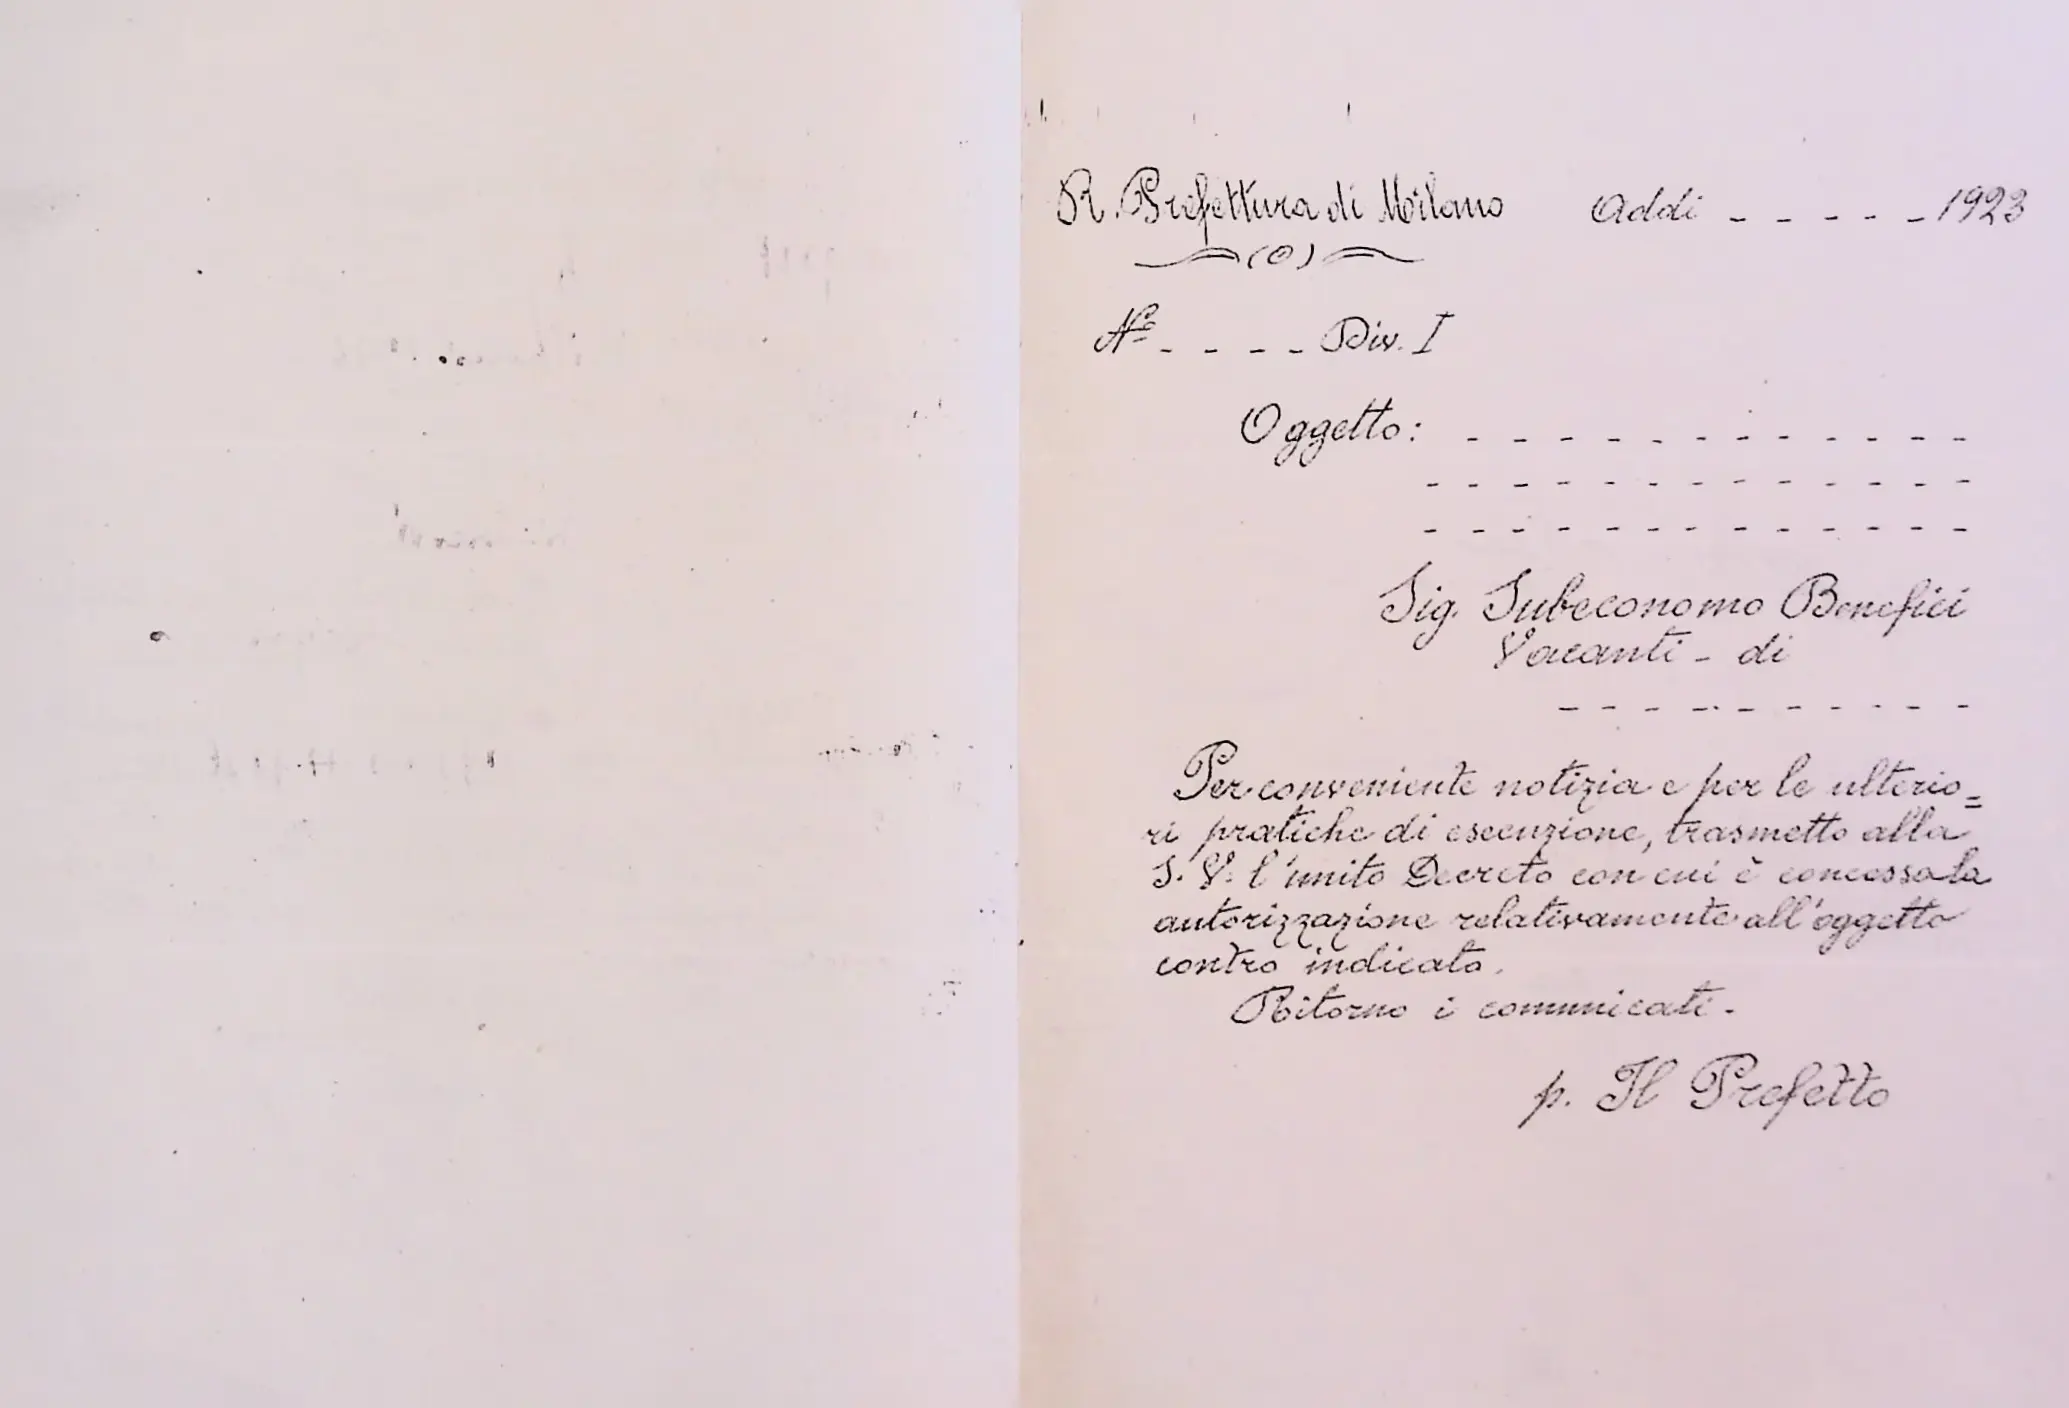 R. Prefettura di Milano Addì - - - - - 1923
N.º - - - - Div. I
Oggetto: - - - - - - - - - - - -
- - - - - - - - - - - - -
- - - - - - - - - - - - -
Sig. Subeconomo Benefici
Vacanti - di
- - - - - - - - - -
Per conveniente notizia e per le ulterio=
ri pratiche di esecuzione, trasmetto alla
S. V. l'unito Decreto con cui è concessa la
autorizzazione relativamente all'oggetto
contro indicato.
Ritorno i comunicati.
p. Il Prefetto